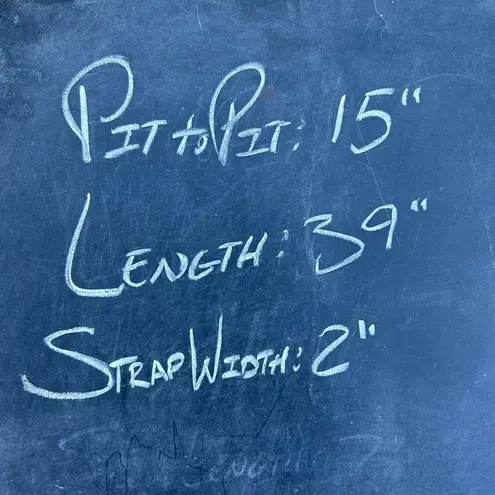 Pit to Pit: 15"
Length: 39"
Strap Width: 2"